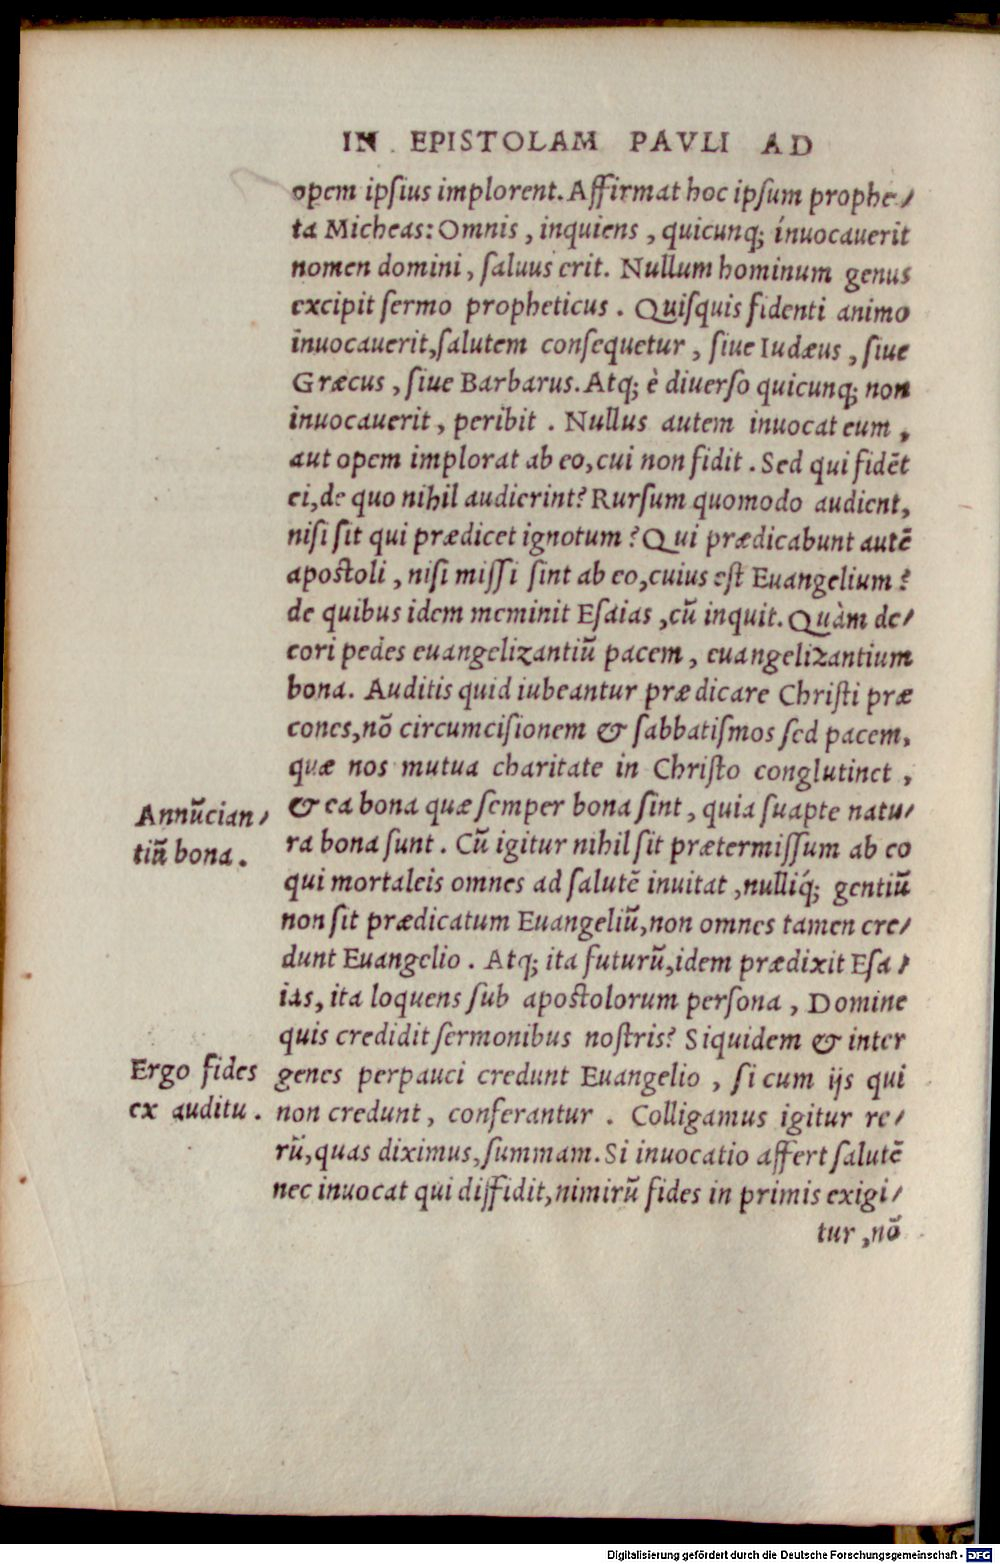 IN EPISTOLAM PAVLI AD
opem ipſius implorent. Affirmat hoc ipſum prophe/
ta Micheas: Omnis, inquiens, quicunq; inuocauerit
nomen domini, ſaluus erit. Nullum hominum genus
excipit ſermo propheticus. Quiſquis fidenti animo
inuocauerit, ſalutem conſequetur, ſiue Iudæus, ſiue
Græcus, ſiue Barbarus. Atq; è diuerſo quicunq; non
inuocauerit, peribit. Nullus autem inuocat eum,
aut opem implorat ab eo, cui non fidit. Sed qui fidēt
ei, de quo nihil audierint? Rurſum quomodo audient,
niſi ſit qui prædicet ignotum? Qui prædicabunt autē
apoſtoli, niſi miſſi ſint ab eo, cuius eſt Euangelium?
de quibus idem meminit Eſaias, cū inquit. Quàm de/
cori pedes euangelizantiū pacem, euangelizantium
bona. Auditis quid iubeantur prædicare Chriſti præ
cones, nō circumciſionem & ſabbatiſmos ſed pacem,
quæ nos mutua charitate in Chriſto conglutinet,
& ea bona quæ ſemper bona ſint, quia ſuapte natu/
ra bona ſunt. Cū igitur nihil ſit prætermiſſum ab eo
qui mortaleis omnes ad ſalutē inuitat, nulliq́; gentiū
non ſit prædicatum Euangeliū, non omnes tamen cre/
dunt Euangelio. Atq; ita futurū, idem prædixit Eſa/
ias, ita loquens ſub apoſtolorum perſona, Domine
quis credidit ſermonibus noſtris? Siquidem & inter
genes perpauci credunt Euangelio, ſi cum ijs qui
non credunt, conferantur. Colligamus igitur re/
rū, quas diximus, ſummam. Si inuocatio affert ſalutē
nec inuocat qui diffidit, nimirū fides in primis exigi/
tur, nō
Annūcian/
tiū bona.
Ergo fides
ex auditu.
Digitalisierung gefördert durch die Deutsche Forschungsgemeinschaft - DFG